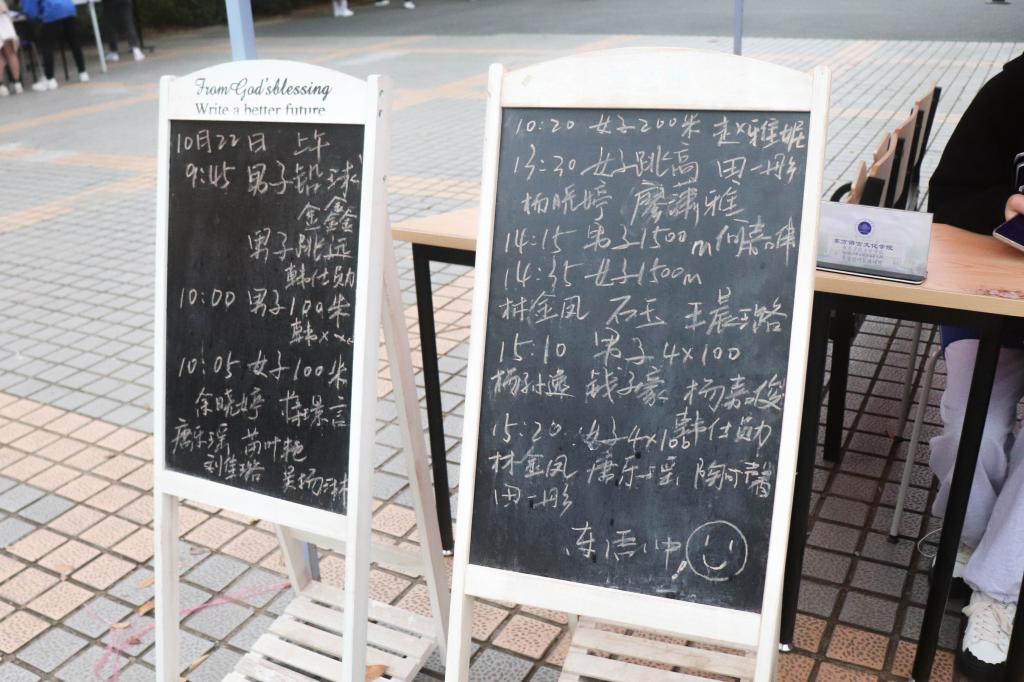 From God's blessing
Write a better future
10月22日 上午
9:45 男子铅球
金鑫
男子跳远
韩仕勋
10:00 男子100米
韩
10:05 女子100米
余晓婷 景言
唐乐瑶 苗叶艳
刘佳珞 吴杨琳
10:20 女子200米 雅妮
13:30 女子跳高 田一彤
杨晓婷 廖潇雅
14:15 男子1500m 何嘉伟
14:35 女子1500m
林金凤 石玉 王晨璐
15:10 男子4×100
杨 远 钱子豪 杨嘉俊
15:20 女子4×100 韩仕勋
林金凤 唐乐瑶 陶可馨
田一彤
东语冲!
东方语言文化学院